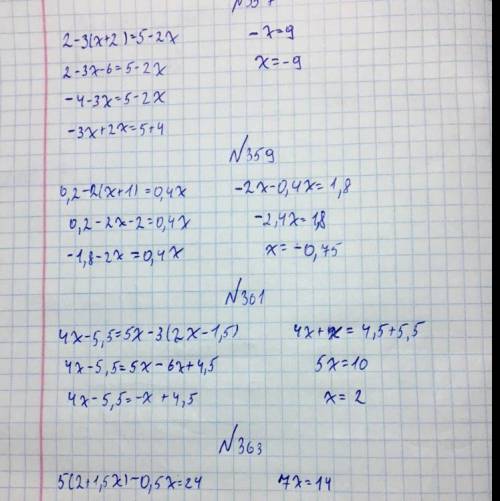 2-3(x+2)=5-2x
2-3x-6=5-2x
-4-3x=5-2x
-3x+2x=5+4
-x=9
x=-9
№359
0,2-2(x+1)=0,4x
0,2-2x-2=0,4x
-1,8-2x=0,4x
-2x-0,4x=1,8
-2,4x=1,8
x=-0,75
№361
4x-5,5=5x-3(2x-1,5)
4x-5,5=5x-6x+4,5
4x-5,5=-x+4,5
4x+x=4,5+5,5
5x=10
x=2
№363
5(2+1,5x)-0,5x=24
7x=14